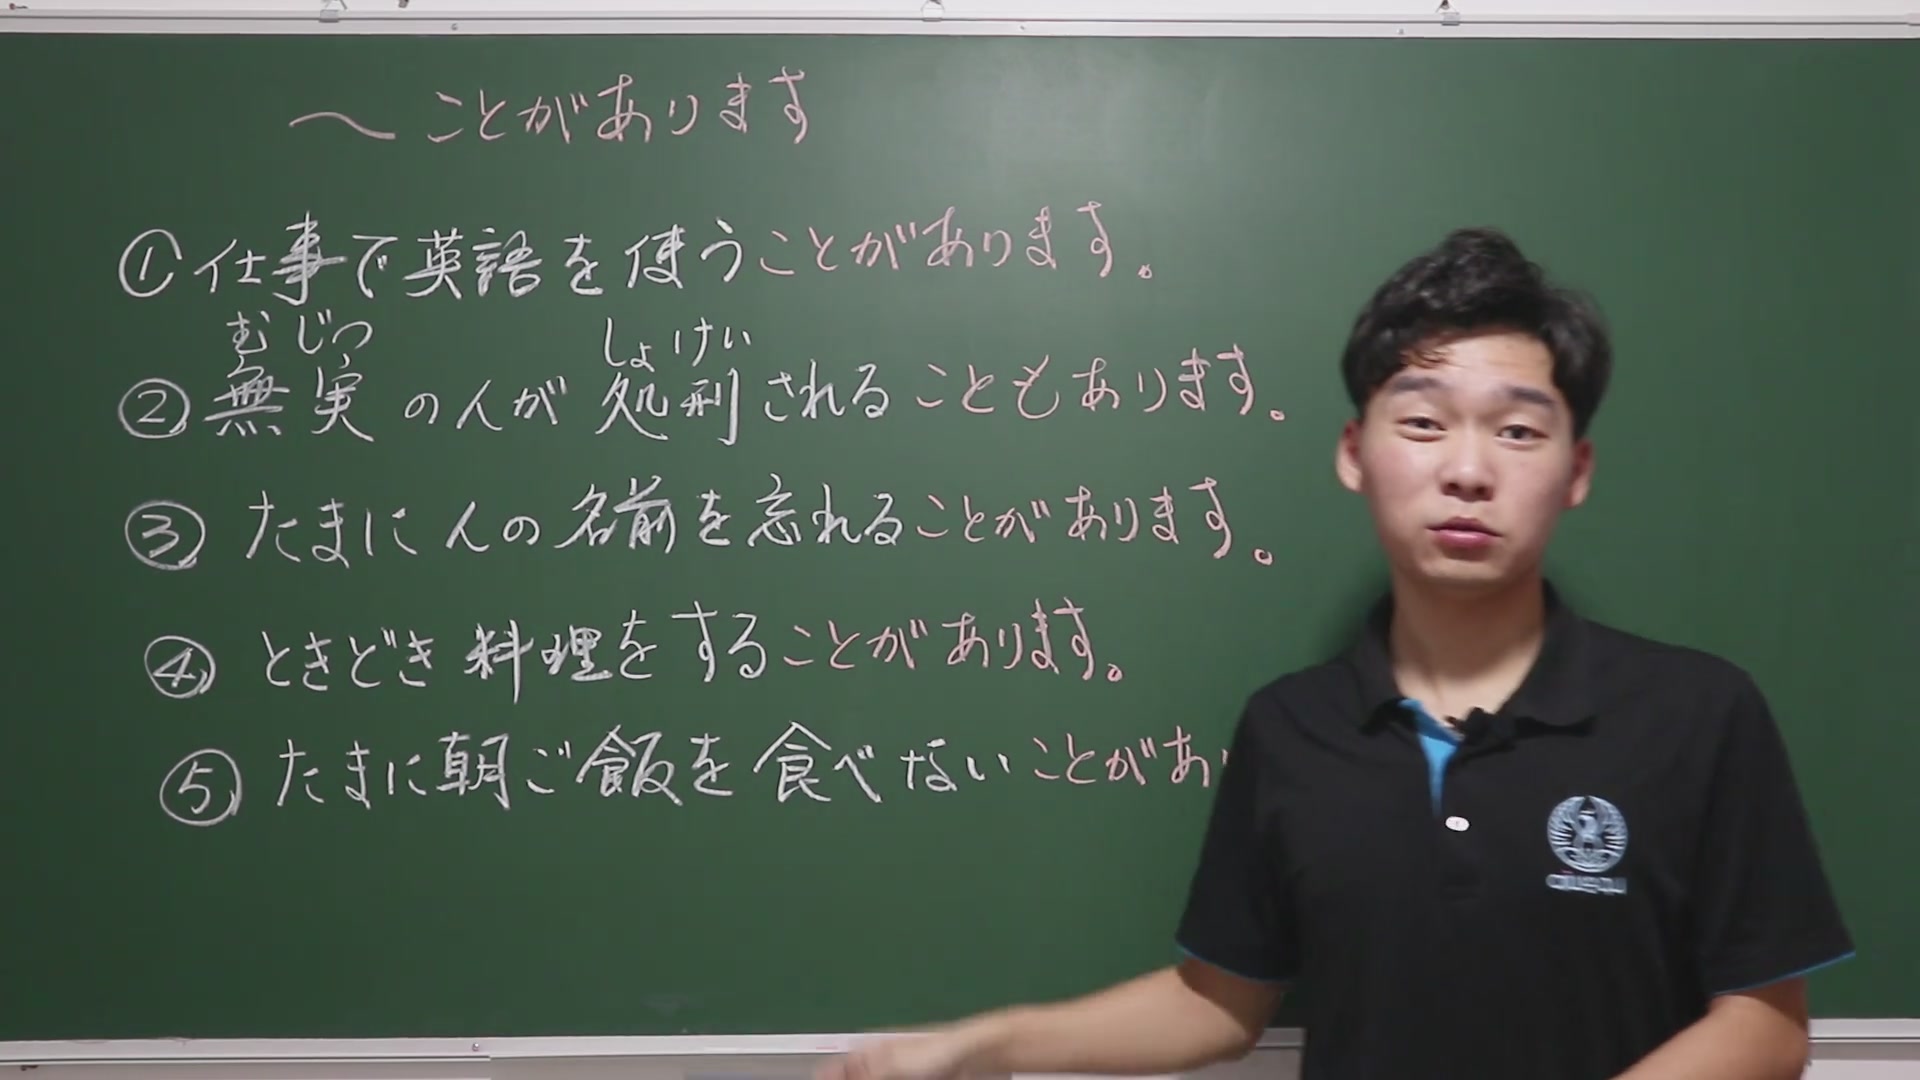 〜ことがあります
①仕事で英語を使うことがあります。
むじつ しょけい
②無実の人が処刑されることもあります。
③たまに人の名前を忘れることがあります。
④ときどき料理をすることがあります。
⑤たまに朝ご飯を食べないことがあ